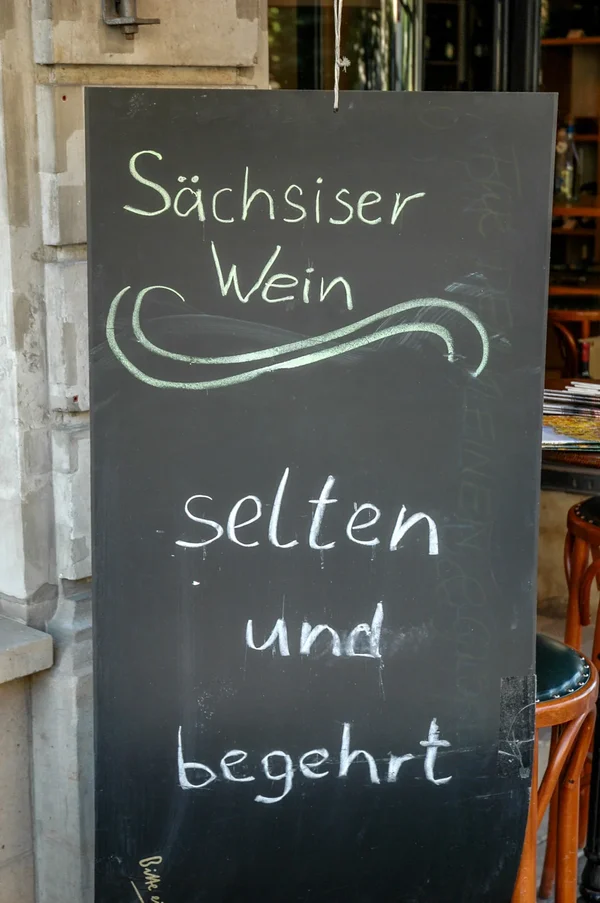 Sächsiser
Wein
selten
und
begehrt
Bitte